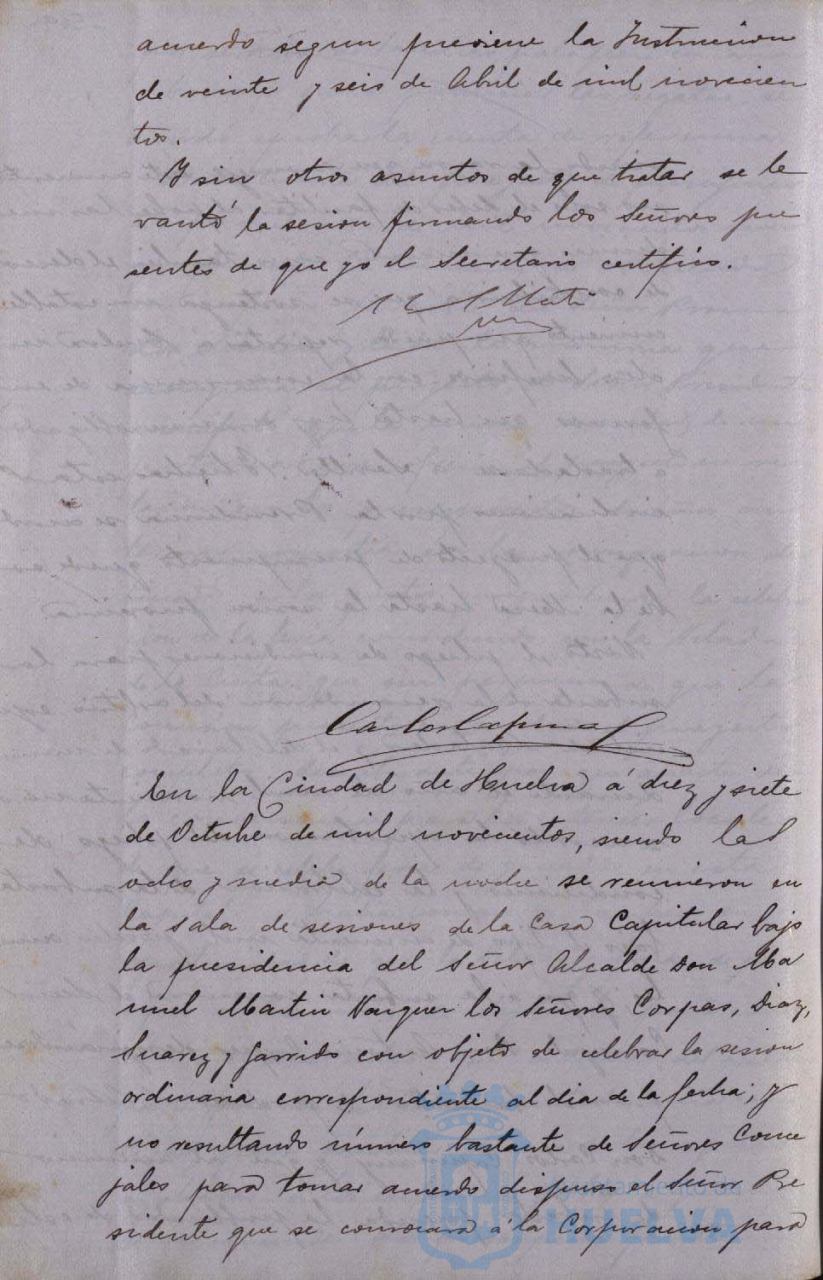 acuerdo segun previene la Instruccion
de veinte y seis de Abril de mil novecien
tos.
Y sin otros asuntos de que tratar se le
vantó la sesion firmando los Señores pre
sentes de que yo el Secretario certifico.
Carlos Espina
En la Ciudad de Huelva á diez y siete
de Octubre de mil novecientos, siendo las
ocho y media de la noche se reunieron en
la sala de sesiones de la Casa Capitular bajo
la presidencia del Señor Alcalde Don Ma
nuel Martin Vazquez los Señores Corpas, Diaz,
Suarez y Garrido con objeto de celebrar la sesion
ordinaria correspondiente al dia de la fecha; y
no resultando número bastante de Señores Conce
jales para tomar acuerdo dispuso el Señor Pre
sidente que se convocara á la Corporacion para
Ayuntamiento de
HUELVA